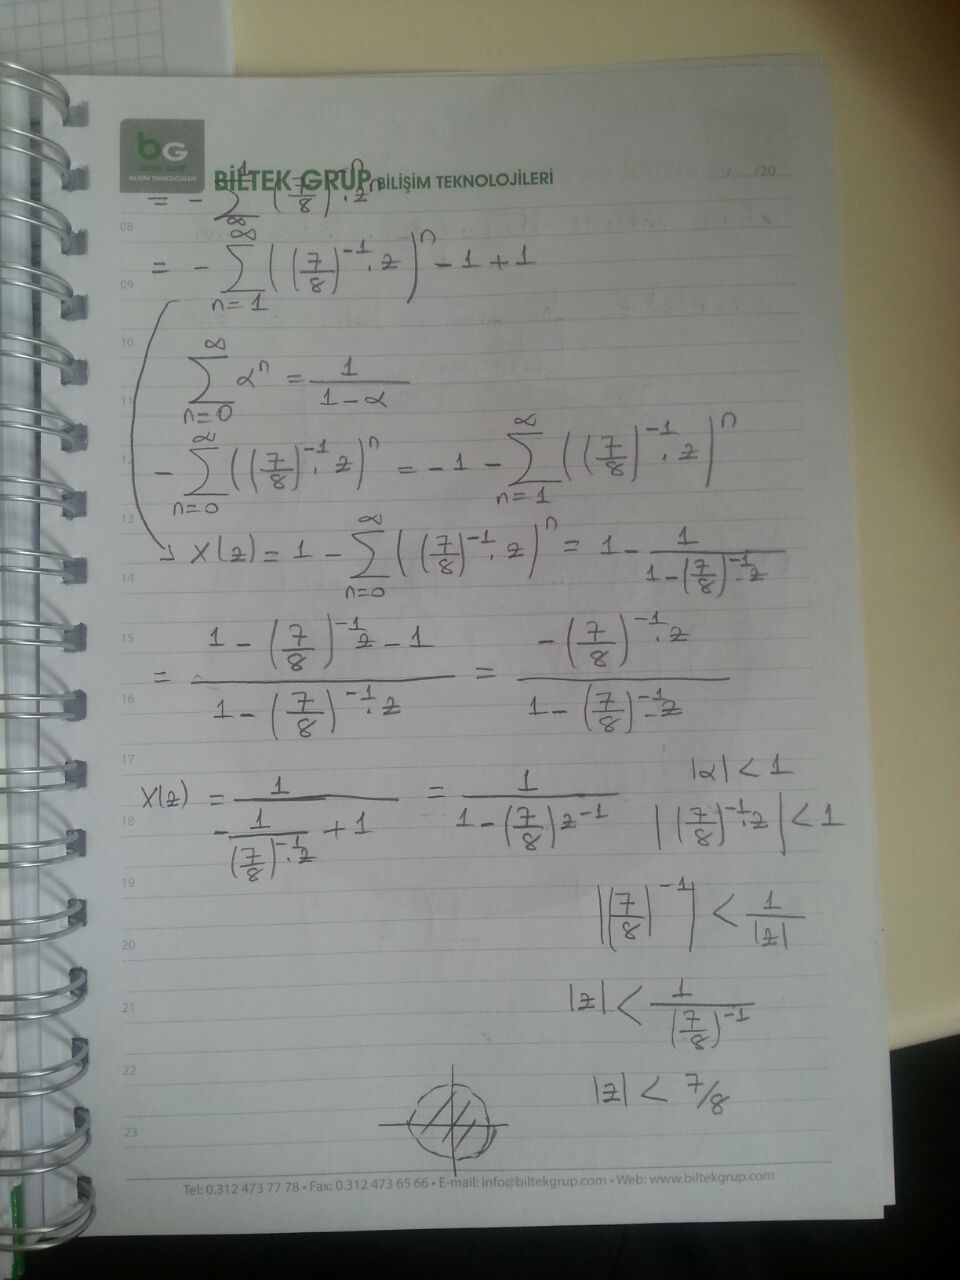 bG
BİLTEK GRUP
BİLİŞİM TEKNOLOJİLERİ
BİLTEK GRUP BİLİŞİM TEKNOLOJİLERİ
/ /20
= - ∑ (7/8) . zⁿ
08
= - ∑_{n=1}^{∞} ((7/8)^{-1} . z)^n - 1 + 1
09
10
∑_{n=0}^{∞} α^n = 1/(1-α)
11
- ∑_{n=0}^{∞} ((7/8)^{-1} . z)^n = -1 - ∑_{n=1}^{∞} ((7/8)^{-1} . z)^n
12
13
X(z) = 1 - ∑_{n=0}^{∞} ((7/8)^{-1} . z)^n = 1 - 1/(1-(7/8)^{-1} . z)
14
15
= (1 - (7/8)^{-1} z - 1)/(1 - (7/8)^{-1} . z) = (-(7/8)^{-1} . z)/(1 - (7/8)^{-1} . z)
16
17
|α| < 1
X(z) = 1/(-1/((7/8)^{-1} . z) + 1) = 1/(1 - (7/8) z^{-1}) |(7/8)^{-1} . z| < 1
18
19
|(7/8)^{-1}| < 1/|z|
20
21
|z| < 1/(7/8)^{-1}
22
|z| < 7/8
23
Tel: 0.312 473 77 78 • Fax: 0.312 473 65 66 • E-mail: info@biltekgrup.com • Web: www.biltekgrup.com